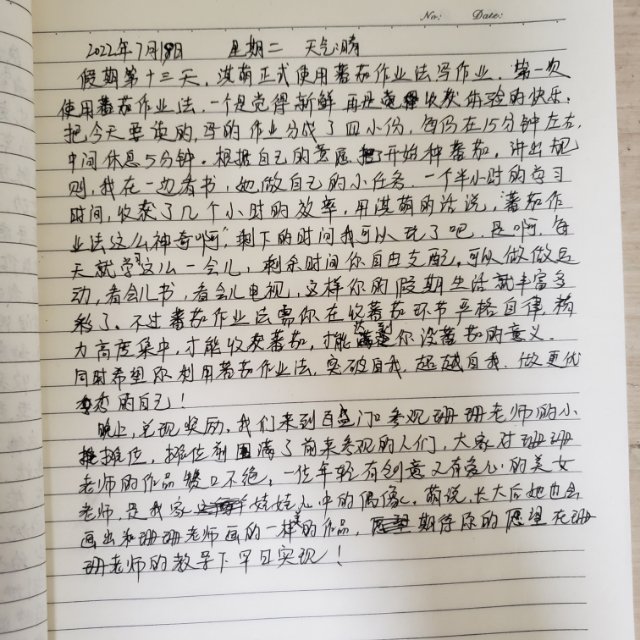 No: Date:
2022年7月19日 星期二 天气:晴
假期第十三天,淇萌正式使用蕃茄作业法写作业,第一次
使用蕃茄作业法,一个是觉得新鲜 再是收获体验的快乐,
把今天要读的,写的作业分成了四小份,每份在15分钟左右,
中间休息5分钟。根据自己的意愿开始种蕃茄,讲出规
则,我在一边看书,她做自己的小任务。一个半小时的学习
时间,收获了几个小时的效率,用淇萌的话说,"蕃茄作
业法这么神奇啊,剩下的时间我可以玩了吧。是啊,每
天就学这么一会儿,剩余时间你自由支配,可以做做运
动,看会儿书,看会儿电视,这样你的假期生活就丰富多
彩了。不过蕃茄作业法需你在收蕃茄环节严格自律,精
力高度集中,才能收获蕃茄,才能达到你没蕃茄的意义。
同时希望你利用蕃茄作业法,突破自我,超越自我,做更优
秀的自己!
晚上,兑现奖励,我们来到百盛门口参观珊珊老师的小
摊位,摊位前围满了前来参观的人们,大家对珊珊
老师的作品赞口不绝,一位年轻有创意又有爱心的美女
老师,是我家娃娃心中的偶像,萌说,长大后她也会
画出和珊珊老师画的一样的作品,期待你的愿望在珊
珊老师的教导下早日实现!